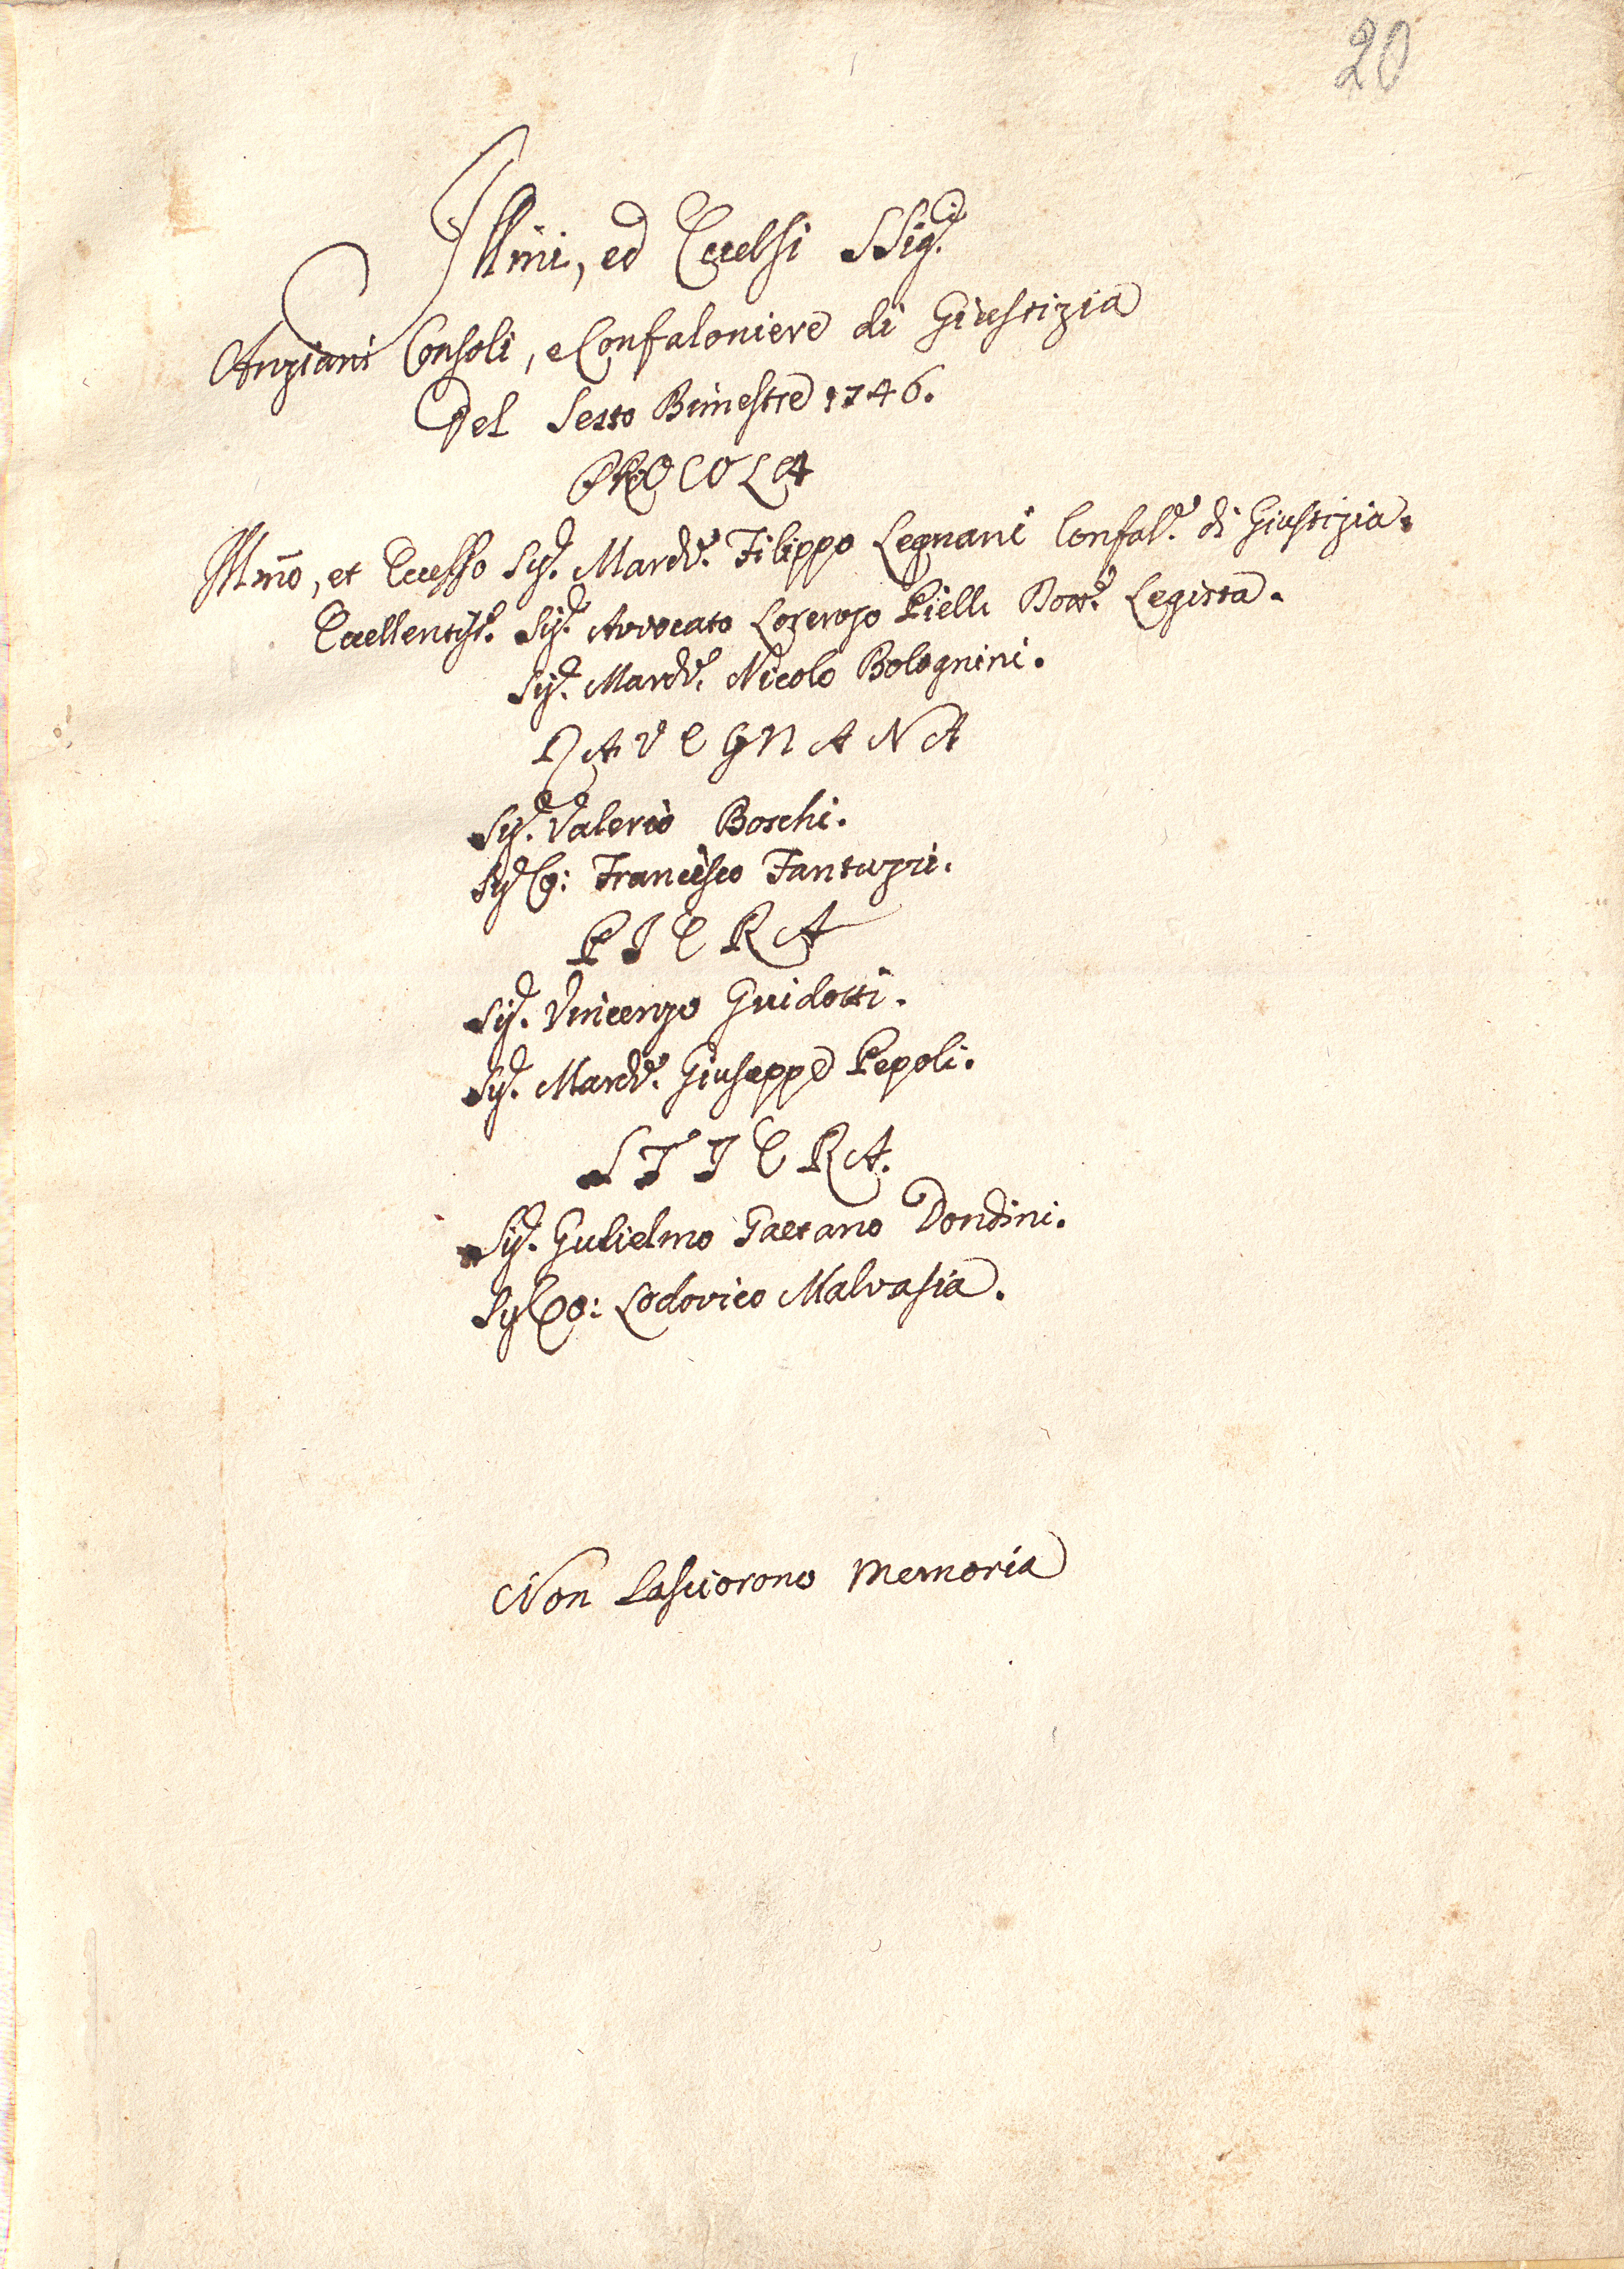 20
Illmi, ed Eccelsi SSig.ri
Anziani Consoli, e Confaloniere di Giustizia
Del Sesto Bimestre 1746.
PROCOLA
Illmo, et Eccelso Sig.r March.e Filippo Legnani Confal.e di Giustizia.
Eccellentiss.o Sig.r Avvocato Lorenzo Pielli Dott.e Legista.
Sig.r March.e Nicolo Bolognini.
RAVEGNANA
Sig.r Valerio Boschi.
Sig.r Co: Francesco Fantuzzi.
PIERA
Sig.r Vincenzo Guidotti.
Sig.r March.e Giuseppe Pepoli.
STIERA.
Sig.r Gulielmo Gaetano Dondini.
Sig.r Co: Lodovico Malvasia.
Non lasciorono memoria